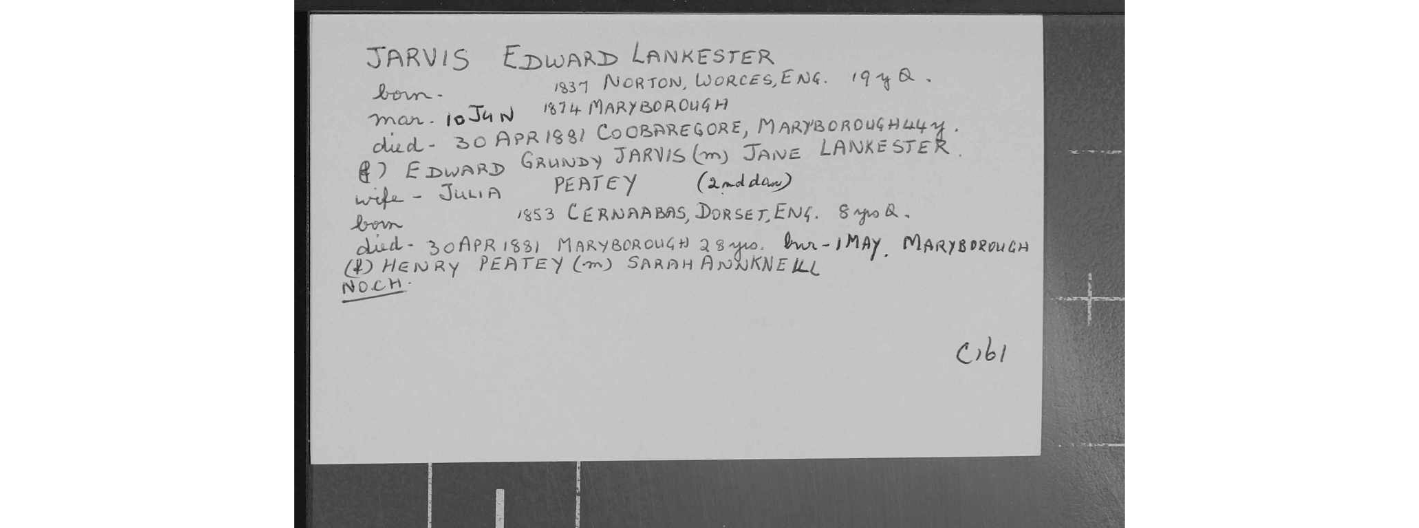 JARVIS EDWARD LANKESTER
born. 1837 NORTON, WORCES, ENG. 19 y Q.
mar. 10 JUN 1874 MARYBOROUGH
died - 30 APR 1881 COOBAREGORE, MARYBOROUGH 44 y.
(f) EDWARD GRUNDY JARVIS (m) JANE LANKESTER.
wife - JULIA PEATEY (2nd dau)
born 1853 CERNAABAS, DORSET, ENG. 8 yrs Q.
died - 30 APR 1881 MARYBOROUGH 28 yrs. bur - 1 MAY. MARYBOROUGH
(f) HENRY PEATEY (m) SARAH ANN KNELL
NO.CH.
C161